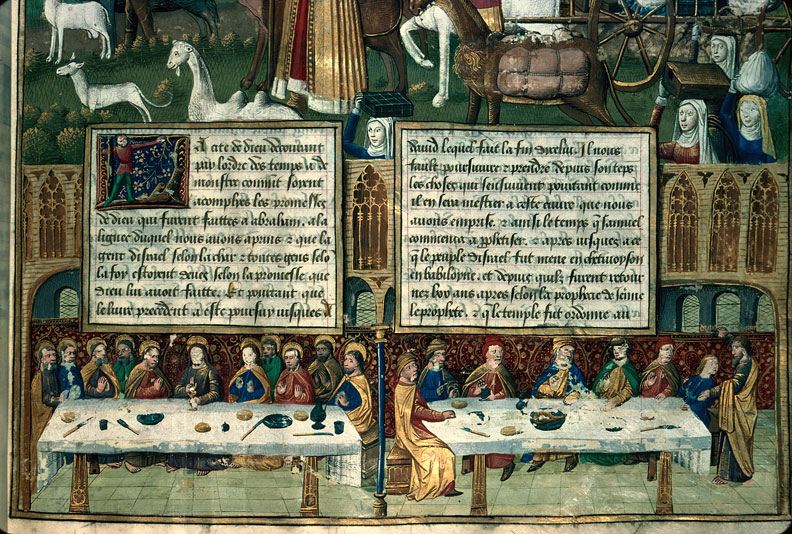 La cite de dieu decourant
par lordre des temps
monstre comment soient
acomplies les promesses
de dieu qui furent faittes a abraham. a la
lignee duquel nous auons aprins & que la
gent disrael selon la char & toutes gens selo
la foy estoient selon la promesse que
dieu lui auoit faitte. Et pourtant que
le liure precedent a este poursuy iusques a
dauid lequel fait la fin dicelui. Il nous
fault poursuiure & prendre depuis son teps
les choses qui sensuiuent pourtant comme
il en sera mestier a ceste euure que nous
auons emprise. & ainsi le temps que samuel
commenca a pphetiser. & apres iusques a ce
q le peuple disrael fut mene en chetiuoyson
en babilone. et depuis quilz furent retour
nez lxx ans apres selon la prophecie de
le prophete. & q le temple fut ordonne au